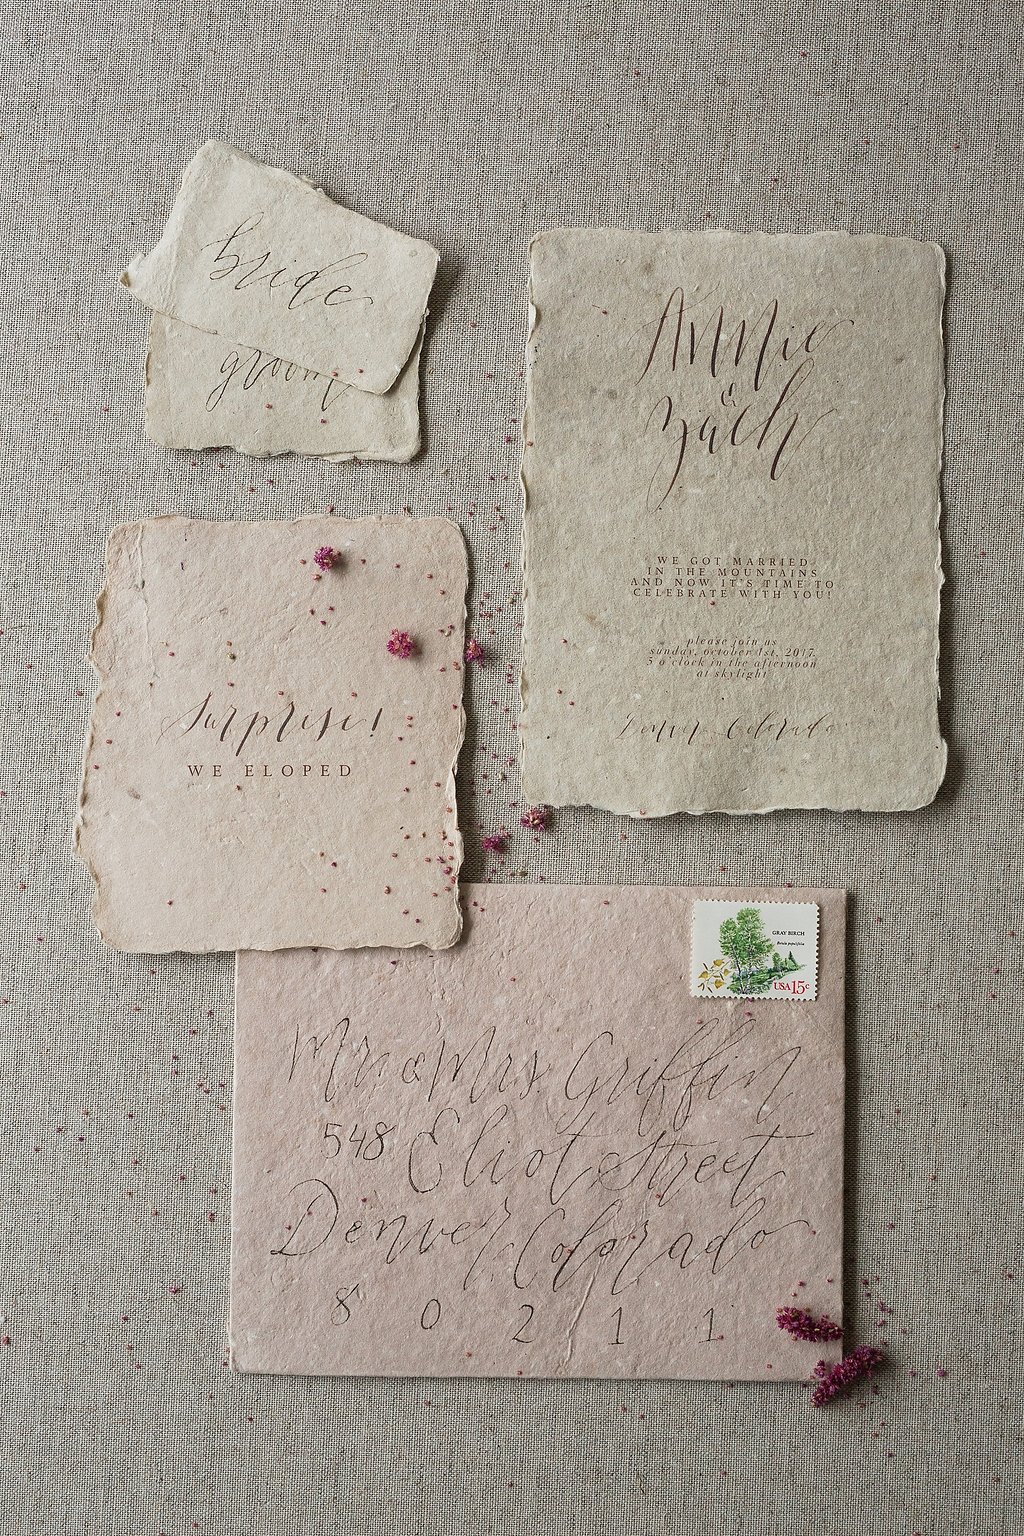 bride
groom
Annie
&
Zach
WE GOT MARRIED
IN THE MOUNTAINS
AND NOW IT'S TIME TO
CELEBRATE WITH YOU!
please join us
sunday, october 1st, 2017
5 o'clock in the afternoon
at skylight
Denver, Colorado
Surprise!
WE ELOPED
GRAY BIRCH
Betula populifolia
USA 15c
Mr & Mrs. Griffin
548 Eliot Street
Denver, Colorado
8 0 2 1 1